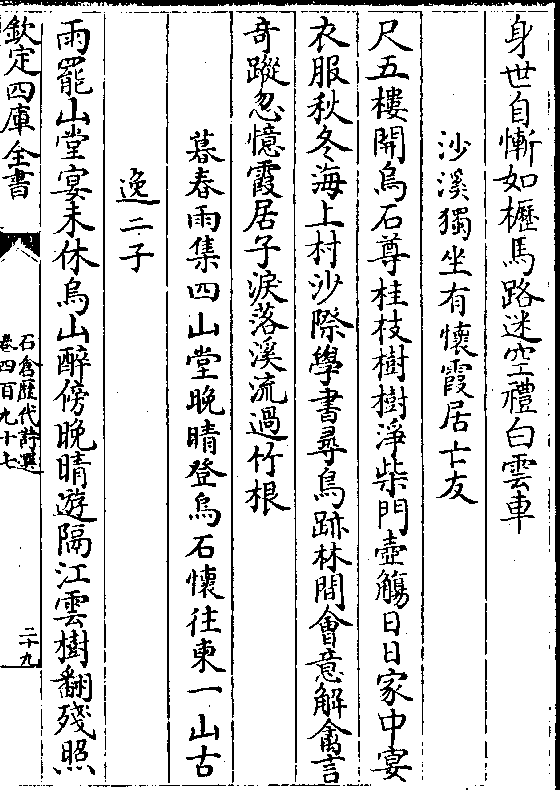 身世自慚如櫪馬路迷空禮白雲車
沙溪獨坐有懷霞居亡友
尺五樓開烏石尊桂枝樹樹淨柴門壺觴日日家中宴
衣服秋冬海上村沙際學書尋鳥跡林間會意解禽言
奇蹤忽憶霞居子淚落溪流過竹根
暮春雨集四山堂晚晴登烏石懷往東一山古
逸二子
雨罷山堂宴未休烏山醉傍晚晴遊隔江雲樹翻殘照
欽定四庫全書
石倉歷代詩選
卷四百九十七
二十九